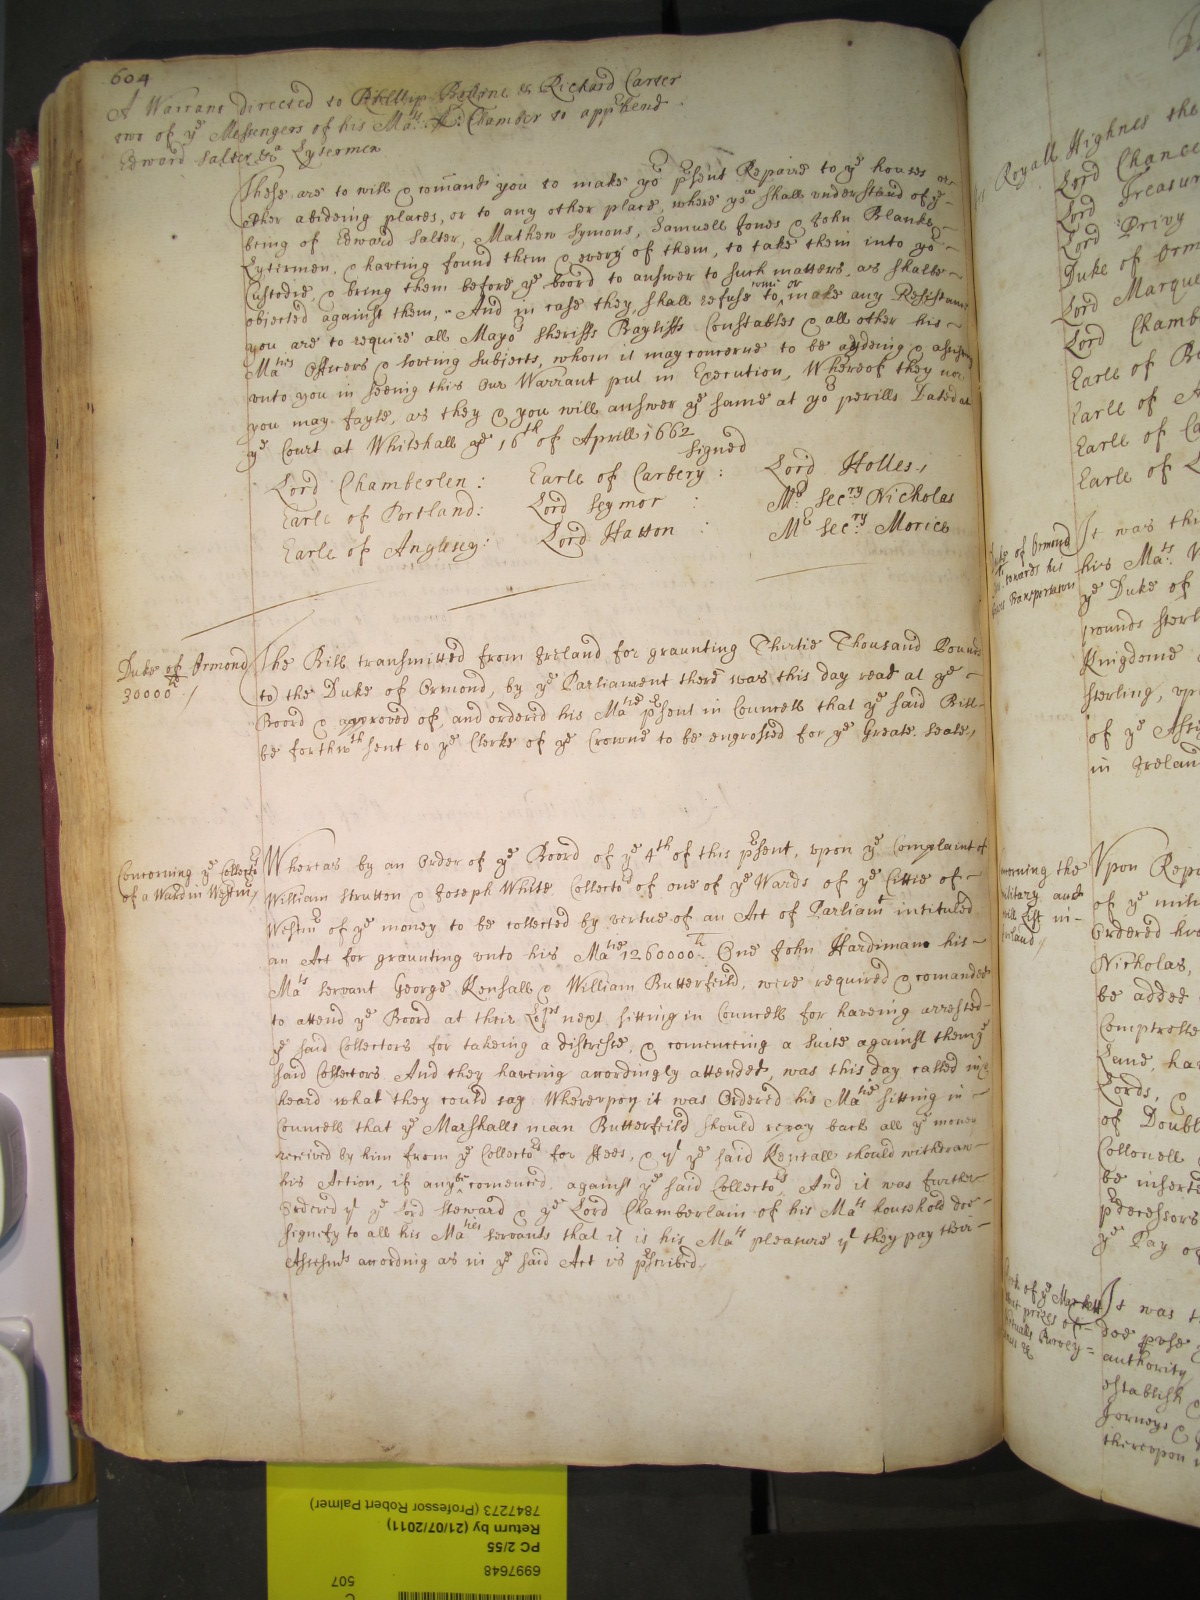 604
A Warrant directed to Phillip Bodine & Richard Carter
two of ye Messengers of his Mats Chamber to apprhend
Edward Salter &a Lytermen
These are to will & comand you to make yor prsent Repaire to ye houses or
other abideing places, or to any other place, where you shall understand of ye
being of Edward Salter, Mathew Symons, Samuell Jones & John Blanke
Lytermen, & haveing found them & every of them, to take them into yor
Custodie, & bring them before ye boord to answer to such matters, as shalbe
objected against them, And in case they shall refuse to come or make any Resistance
you are to require all Mayors Sheriffs Bayliffs Constables & all other his
Maties Officers & loveing Subjects, whom it may concerne to be aydeing & assisting
unto you in seeing this Our Warrant put in Execution, Whereof they nor
you may fayle, as they & you will answer ye same at yor perills Dated at
ye Court at Whitehall ye 16th of Aprill 1662
Signed
Lord Chamberlen : Earle of Carbery : Lord Holles,
Earle of Portland: Lord Seymor : Mr Secry Nicholas
Earle of Anglesey: Lord Hatton : Mr Secry Morice
Duke of Ormond
30000li /
The Bill transmitted from Ireland for graunting Thirtie Thousand Pounds
to the Duke of Ormond, by ye Parliament there was this day read at ye
Boord & approved of, and ordered his Matie prsent in Councell that ye said Bill
be forthwth sent to ye Clerke of ye Crowne to be engrossed for ye Greate Seale,
Concerning ye Collectrs
of a Ward in Westmr
Whereas by an Order of ye Boord of ye 4th of this prsent, upon ye Complaint of
William Strutton & Joseph White Collectors of one of ye Wards of ye Cittie of
Westmr of ye money to be collected by vertue of an Act of Parliamt intituled
an Act for graunting unto his Matie 1260000li. One John Hardiman his
Mats servant George Kensall & William Butterfeild, were required & comanded
to attend ye Boord at their Lopps next sitting in Councell for haveing arrested
ye said Collectors for takeing a distresse, & comenceing a suite against them ye
said Collectors And they haveing accordingly attended, was this day called in &
heard what they could say Whereupon it was Ordered his Matie sitting in
Councell that ye Marshalls man Butterfeild should repay back all ye money
received by him from ye Collectors for Fees, & yt ye said Kentall should withdraw
his Action, if any be comenced, against ye said Collectors, And it was further
Ordered yt ye Lord Steward & ye Lord Chamberlain of his Mats household doe
signify to all his Maties servants that it is his Mats pleasure yt they pay their
Assessmts according as in ye said Act is prscribed,
Royall Highnes the
Lord Chance
Lord Treasur
Lord Privy
Duke of Orm
Lord Marque
Lord Chamb
Earle of
Earle of
Earle of Ca
Earle of L
of Ormond
towards his
Transportation
It was thi
his Mats
ye Duke of
pounds sterl
Kingdome
sterling, up
of ye Assi
in Ireland
Upon Repo
of ye mili
Ordered
Nicholas,
be added
Comptrolle
Lane, ha
Lords,
of Doubl
Collonell
be inserte
prdecessors
ye Pay of
of ye Markett
prizes of
It was t
doe prse
authority
establish
Jorneys &
thereupon
6997648
PC 2/55
Return by (21/07/2011)
7847273 (Professor Robert Palmer)
C
507